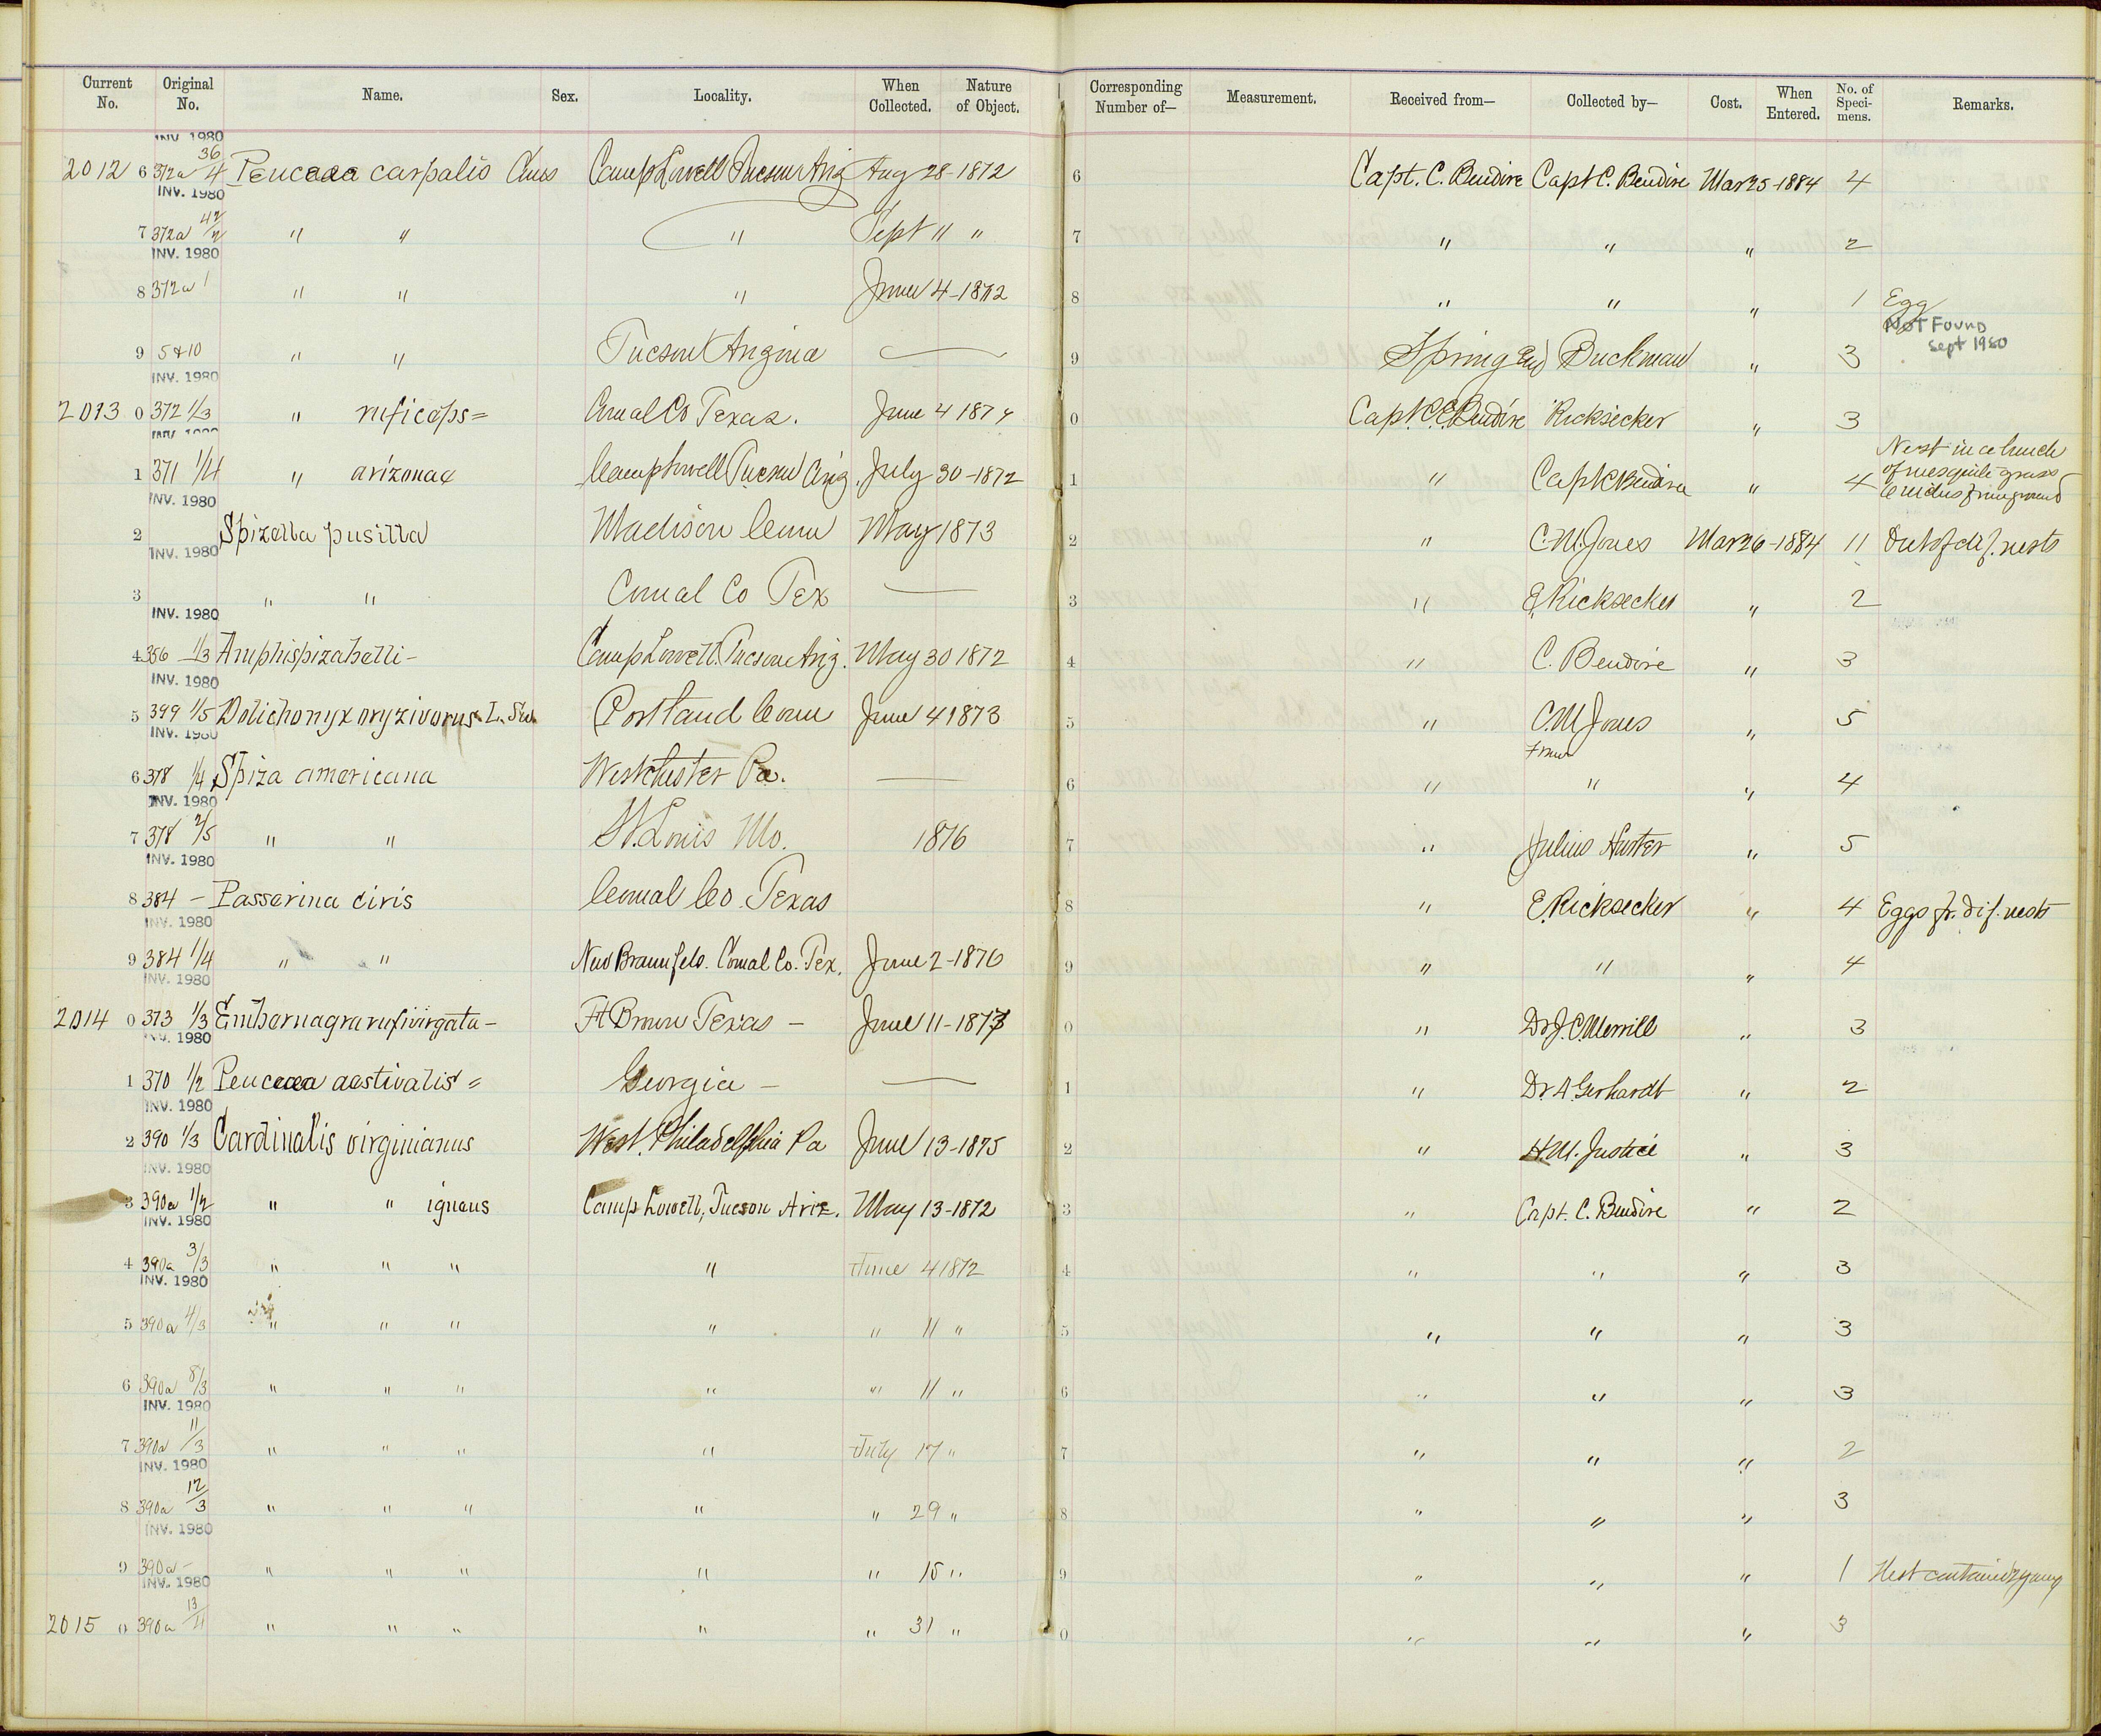 Current No. Original No. Name. Sex. Locality. When Collected. Nature of Object. Corresponding Number of— Measurement. Received from— Collected by— Cost. When Entered. No. of Specimens. Remarks.
INV. 1980
2012 6 372a 36/4 Peucaea carpalis Coues Camp Lowell Tucson Ariz Aug 28-1872 6 Capt. C. Bendire Capt C. Bendire Mar 25-1884 4
INV. 1980
7 372a 42/2 " " " Sept 11 " 7 " " " 2
INV. 1980
8 372a 1 " " " June 4-1872 8 " " " 1 Egg
Not Found
Sept 1980
9 5210 " " Tucson Arizona — 9 Spring End Buckman " 3
INV. 1980
2013 0 372 1/3 " ruficeps= Comal Co Texas. June 4 1874 0 Capt. C.E. Bendire Ricksecker " 3
INV. 1980
1 371 1/4 " arizonae Camp Lowell Tucson Ariz. July 30-1872 1 " Capt C Bendire " 4 Nest in a bunch of mesquite grass 6 inches from ground
INV. 1980
2 Spizella pusilla Madison Conn May 1873 2 " C.M. Jones Mar 26-1884 11 Out of dif. nests
INV. 1980
3 " " Comal Co Tex — 3 " E. Ricksecker " 2
INV. 1980
4 356 1/3 Amphispiza belli- Camp Lowell. Tucson Ariz. May 30 1872 4 " C. Bendire " 3
INV. 1980
5 399 1/5 Dolichonyx oryzivorus L. Sw. Portland Conn June 4 1873 5 " C.M Jones " 5
INV. 1980
from
6 378 1/4 Spiza americana Westchester Pa. — 6 " " " 4
INV. 1980
7 378 2/5 " " St. Louis Mo. 1876 7 " Julius Hurter " 5
INV. 1980
8 384 - Passerina ciris Comal Co. Texas 8 " E. Ricksecker " 4 Eggs fr. dif. nests
INV. 1980
9 384 1/4 " " New Braunfels. Comal Co. Tex. June 2-1876 9 " " " 4
INV. 1980
2014 0 373 1/3 Embernagra rufivirgata- Ft Brown Texas - June 11-1877 0 " Dr J. C. Merrill " 3
INV. 1980
1 370 1/2 Peucaea aestivalis = Georgia - — 1 " Dr. A. Gerhardt " 2
INV. 1980
2 390 1/3 Cardinalis virginianus West. Philadelphia Pa June 13-1875 2 " H.M. Justice " 3
INV. 1980
3 390a 1/2 " " igneus Camp Lowell, Tucson Ariz. May 13-1872 3 " Capt. C. Bendire " 2
INV. 1980
4 390a 3/3 " " " " June 4 1872 4 " " " 3
INV. 1980
5 390a 4/3 " " " " " 11 " 5 " " " 3
6 390a 8/3 " " " " " 11 " 6 " " " 3
INV. 1980
7 390a 11/3 " " " " July 17 " 7 " " " 2
INV. 1980
8 390a 12/3 " " " " " 29 " 8 " " " 3
INV. 1980
9 390a - " " " " " 15 " 9 " " " 1 Nest contained young
INV. 1980
2015 0 390a 13/4 " " " " " 31 " 0 " " " 3